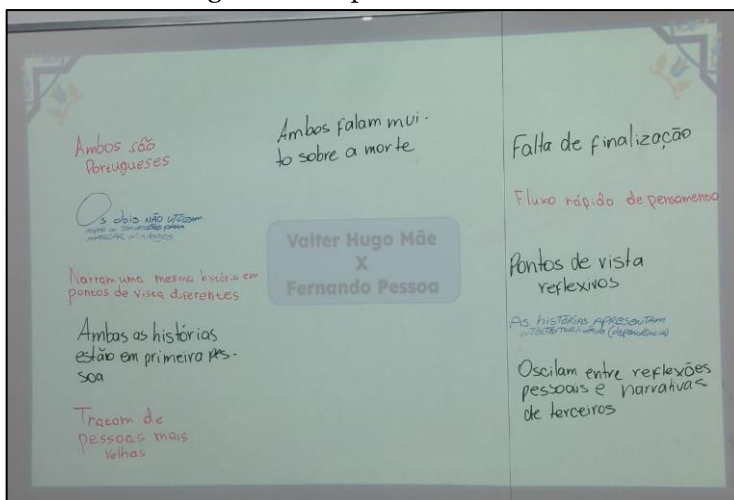 Ambos são
Portugueses
Os dois NÃO UTILIZAM
MARCAR diálogos
Narram uma mesma história em
pontos de vista diferentes
Ambas as histórias
estão em primeira pes-
soa
Tratam de
pessoas mais
velhas
Ambos falam mui-
to sobre a morte
Valter Hugo Mãe
X
Fernando Pessoa
Falta de finalização
Fluxo rápido de pensamento
Pontos de vista
reflexivos
As histórias APRESENTAM
INTERTEXTUALIDADE (dependência)
Oscilam entre reflexões
pessoais e narrativas
de terceiros